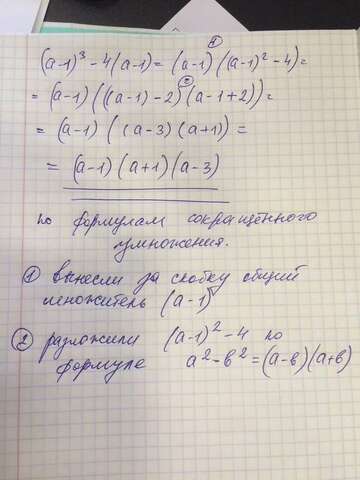 (a-1)³-4(a-1)= (a-1)①((a-1)²-4)=
= (a-1)(((a-1)-2)②(a-1+2))=
= (a-1)((a-3)(a+1))=
= (a-1)(a+1)(a-3)
по формулам сокращённого
умножения.
① вынесли за скобку общий
множитель (a-1)
② разложили (a-1)²-4 по
формуле a²-в²=(a-в)(a+в)